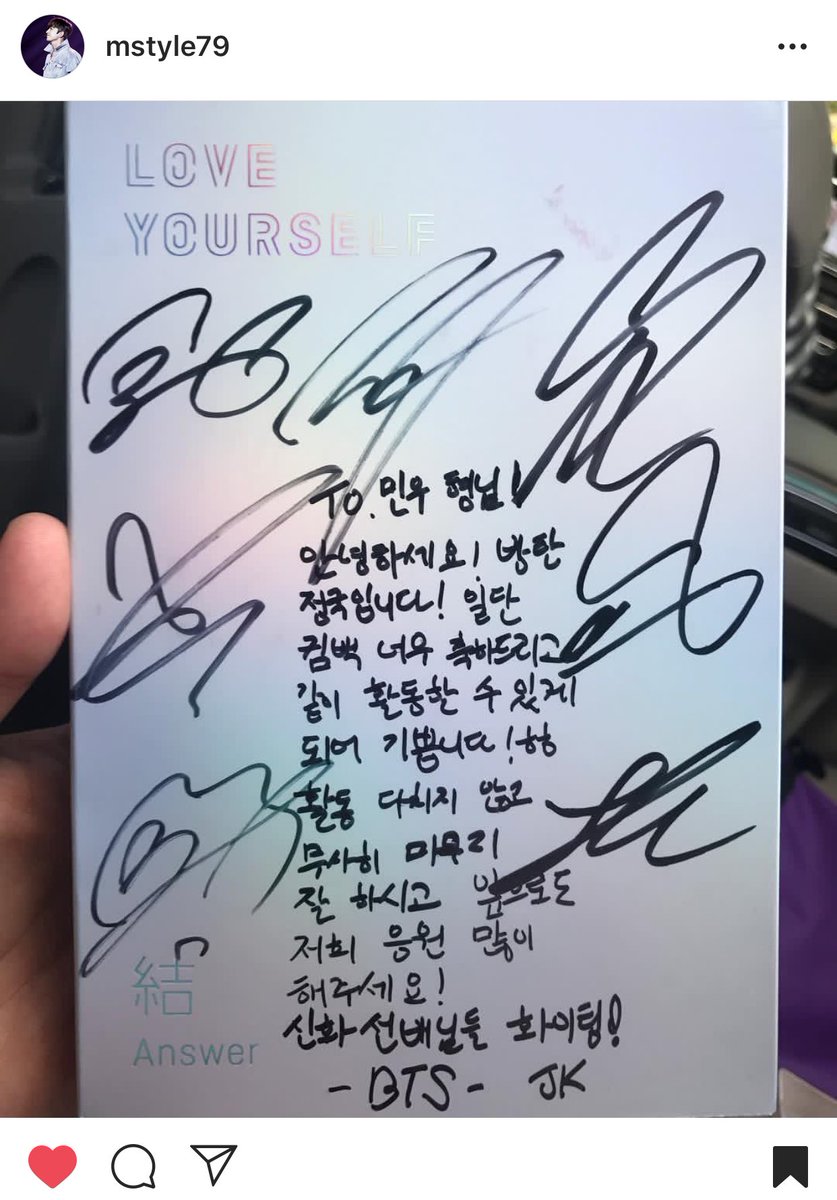 mstyle79
LOVE
YOURSELF
TO. 민우 형님!
안녕하세요! 방탄
정국입니다! 일단
컴백 너무 축하드리고
같이 활동할 수 있게
되어 기쁩니다! ㅎㅎ
활동 다치지 않고
무사히 마무리
잘 하시고 앞으로도
저희 응원 많이
해주세요!
신화 선배님들 화이팅!
- BTS - JK
結
Answer